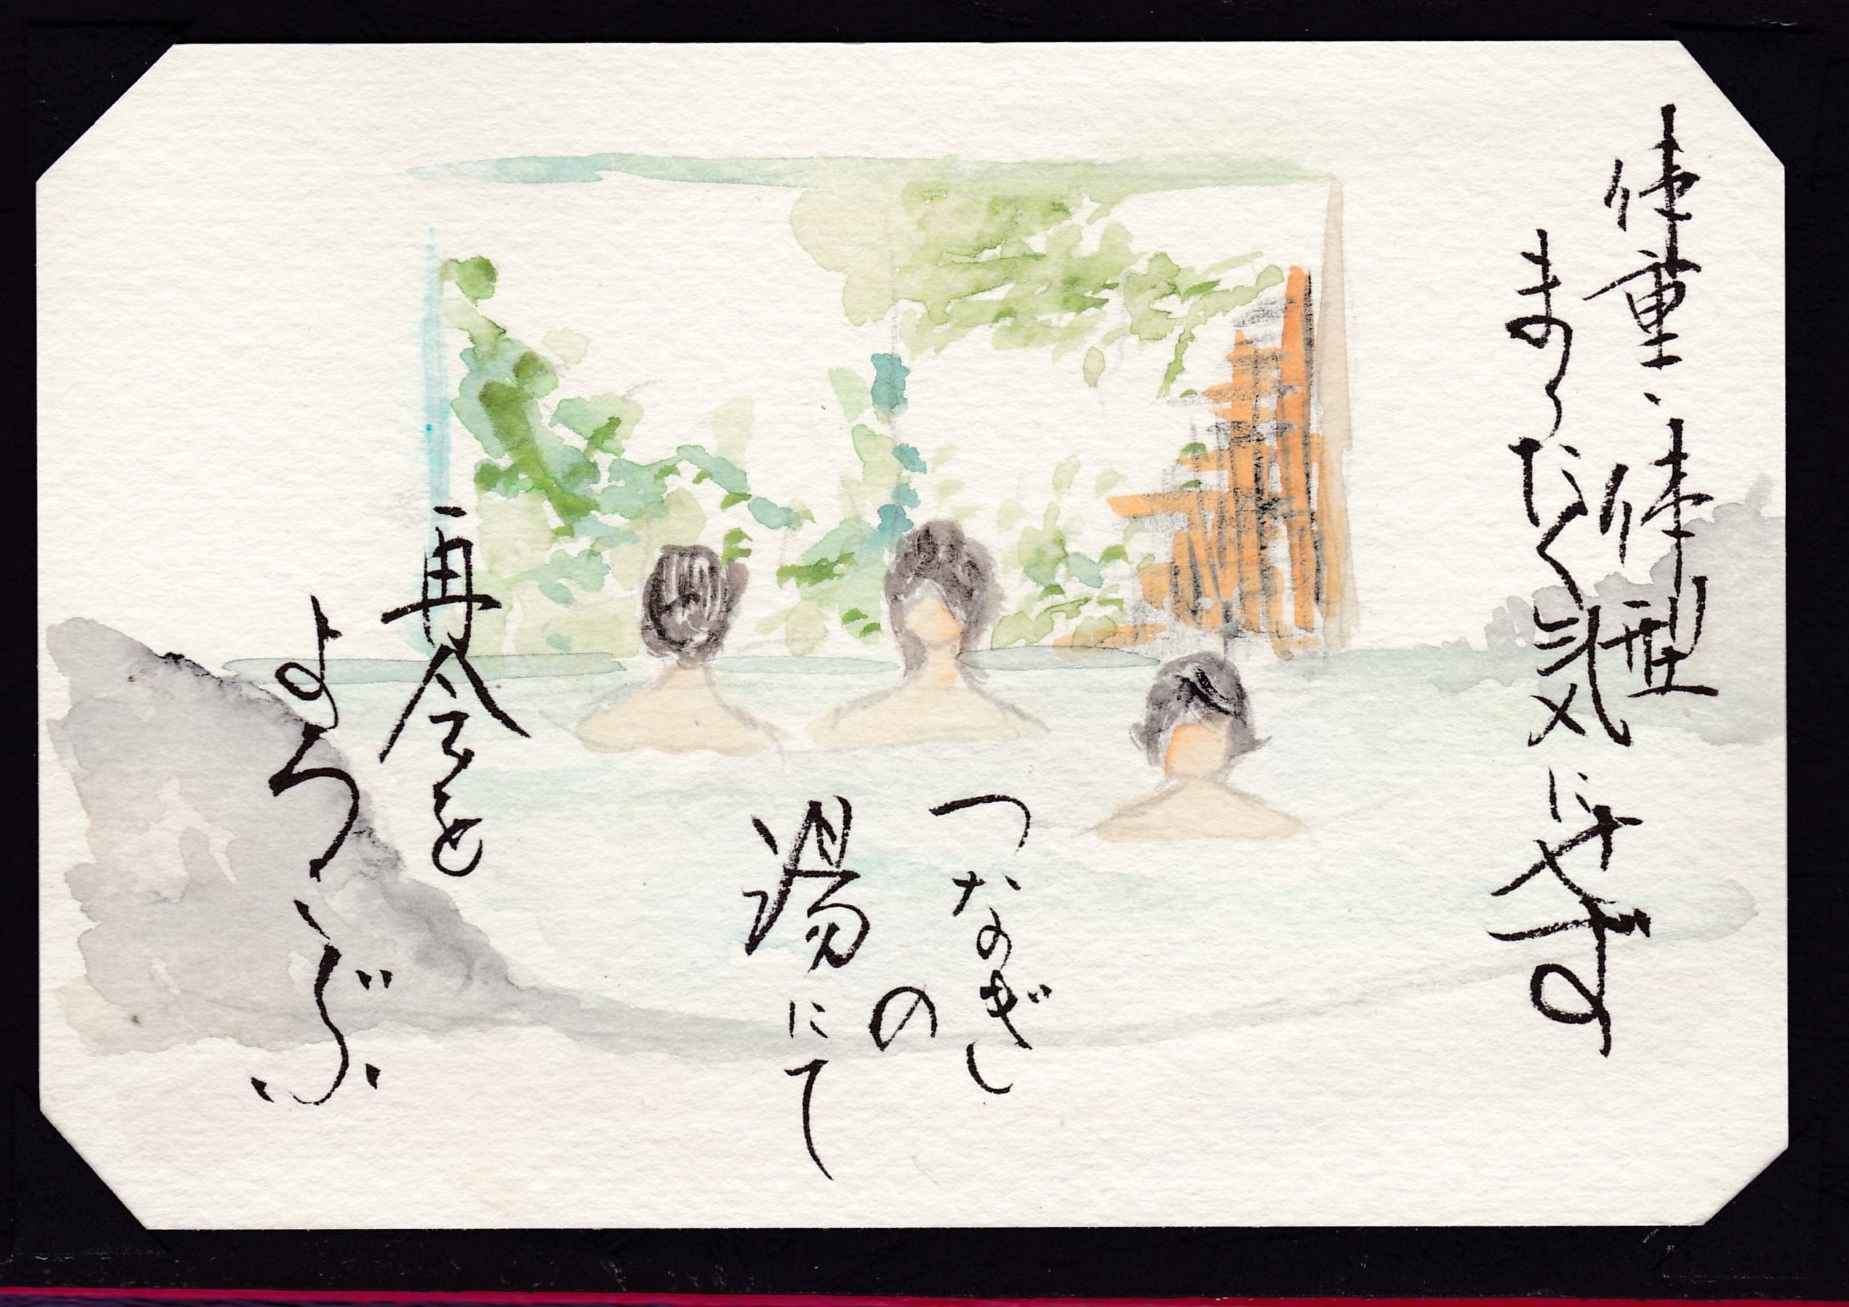 体重・体型
まったく気にせず
つなぎし
の
湯にて
再会を
よろこぶ